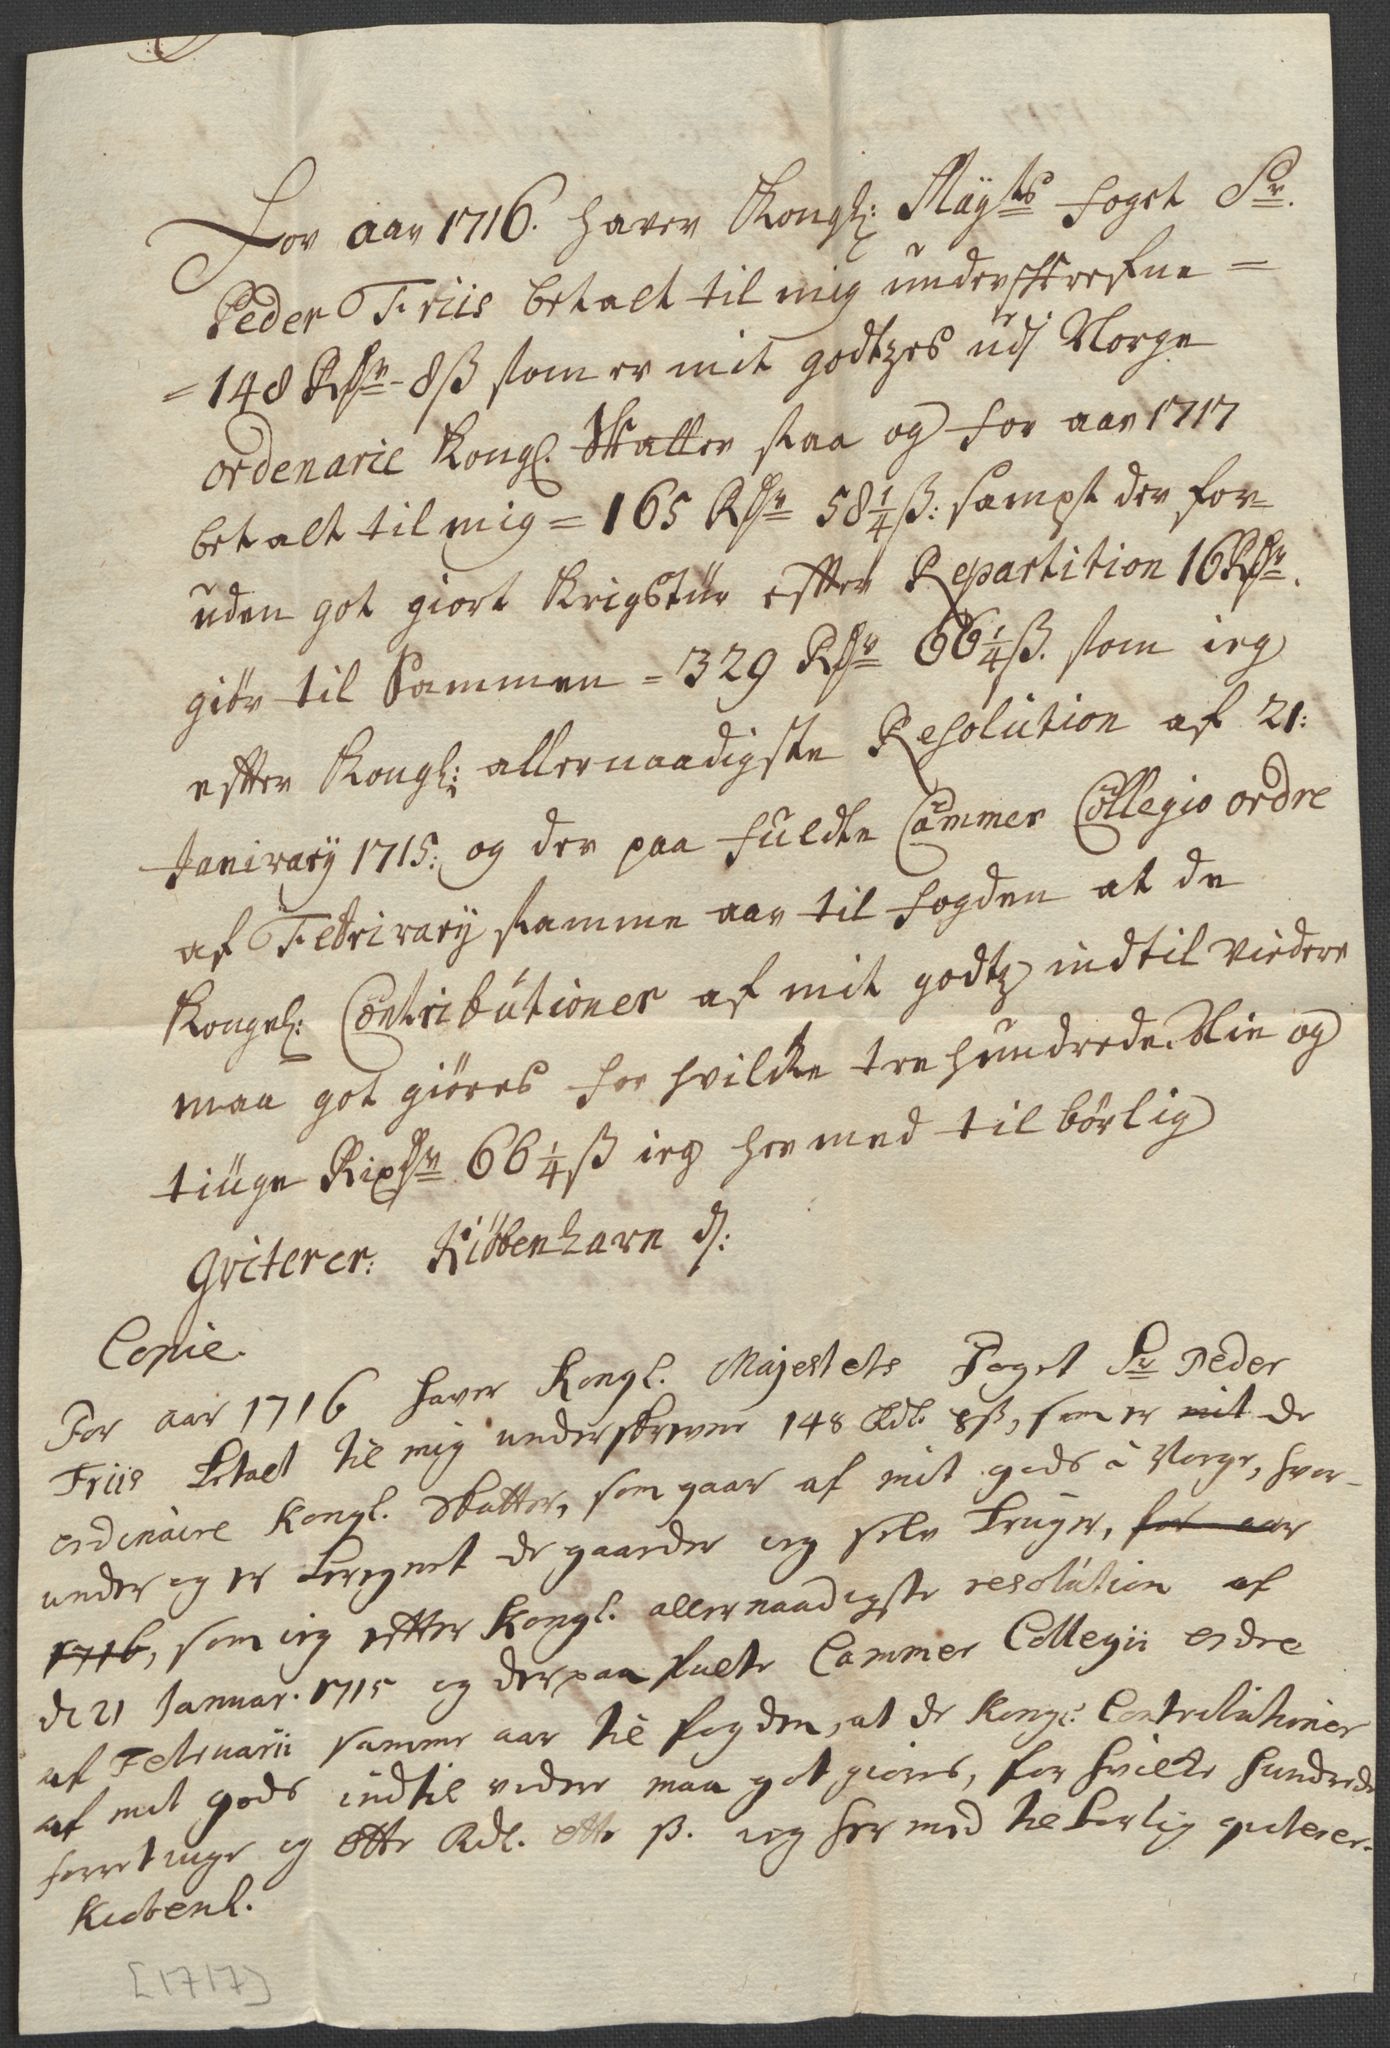 For aar 1716. haver Kongl: Mayts foget Sr.
Peder Friis betalt til mig underschrefne =
= 148 Rdr - 8 ß som er mit godtzes udj Norge
ordenarie Kongl. Skatter staa og for aar 1717
betalt til mig = 165 Rdr 58 1/4 ß: sampt der for-
uden got giort Krigstür efter Repartition 16 Rdr.
giör til Sammen = 329 Rdr 66 1/4 ß. som ieg
efter Kongl: allernaadigste Resolution af 21:
Januarij 1715: og der paa fuldte Cammer Collegio ordre
af Februarij samme aar til fogden at de
Kongel: Contributioner af mit godtz indtil Viedere
maa got giöres for hvilcke tre hundrede Nie og
tiüge Rixdr 66 1/4 ß ieg her med til börlig
Qviterer: Kiöbenhavn d:
Copie.
For aar 1716 haver Kongl. Majestets Foget Sr Peder
Friis betalt til mig underskrevne 148 Rdl. 8 ß, som er mit de
ordinaire Kongl. Skatter, som gaar af mit gods i Norge, hvor-
under og er beregnet de gaarder ieg selv bruger, for aar
1716, som ieg efter Kongl. allernaadigste resolution af
d 21 Januar. 1715 og derpaa fulte Cammer Collegii ordre
af Februarii samme aar til fogden, at de Kongl. Contributioner
af mit gods indtil videre maa got giöres, for hvilke hundrede
förretiuge og otte Rdl. otte ß. ieg her med tilbörlig qviterer.
Kiöbenh.
[1717]